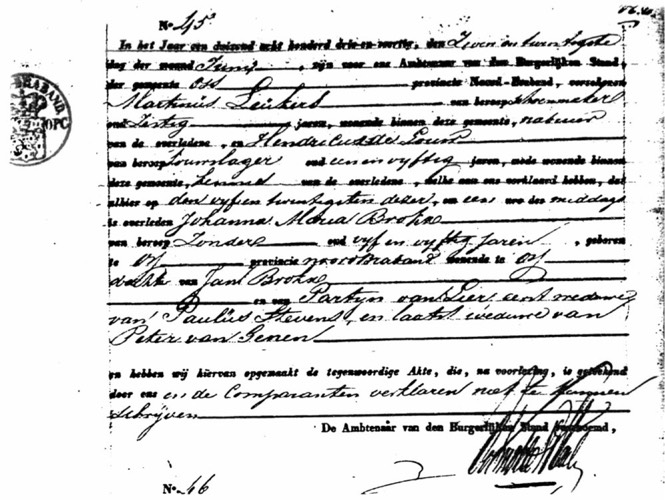 No. 45
In het Jaar een duizend acht honderd drie en veertig, den Zeven en twintigste
dag der maand Junij, zijn voor ons Ambtenaar van den Burgerlijken Stand,
der gemeente Oss provincie Noord-Braband, verschenen
Martinus van beroep Schoenmaker
oud Zestig jaren, wonende binnen deze gemeente, nabuur
van de overledene, en Hendricus de
van beroep Touwslager oud een en vyftig jaren, mede wonende binnen
deze gemeente, van de overledene, welke aan ons verklaard hebben, dat
alhier op den vyf en twintigsten dezer, om een ure des middags
is overleden Johanna Maria
van beroep Zonder oud vyf en vyftig jaren, geboren
te Oss provincie Noordbraband wonende te Oss
dochter van Jan
en van van Lier, eerst weduwe
van Paulus Stevens, en laatst weduwe van
Peter van Genent
en hebben wij hiervan opgemaakt de tegenwoordige Akte, die, na voorlezing, is geteekend
door ons en de Comparanten verklaren niet te kunnen
schrijven
De Ambtenaar van den Burgerlijken Stand voornoemd,
No. 46